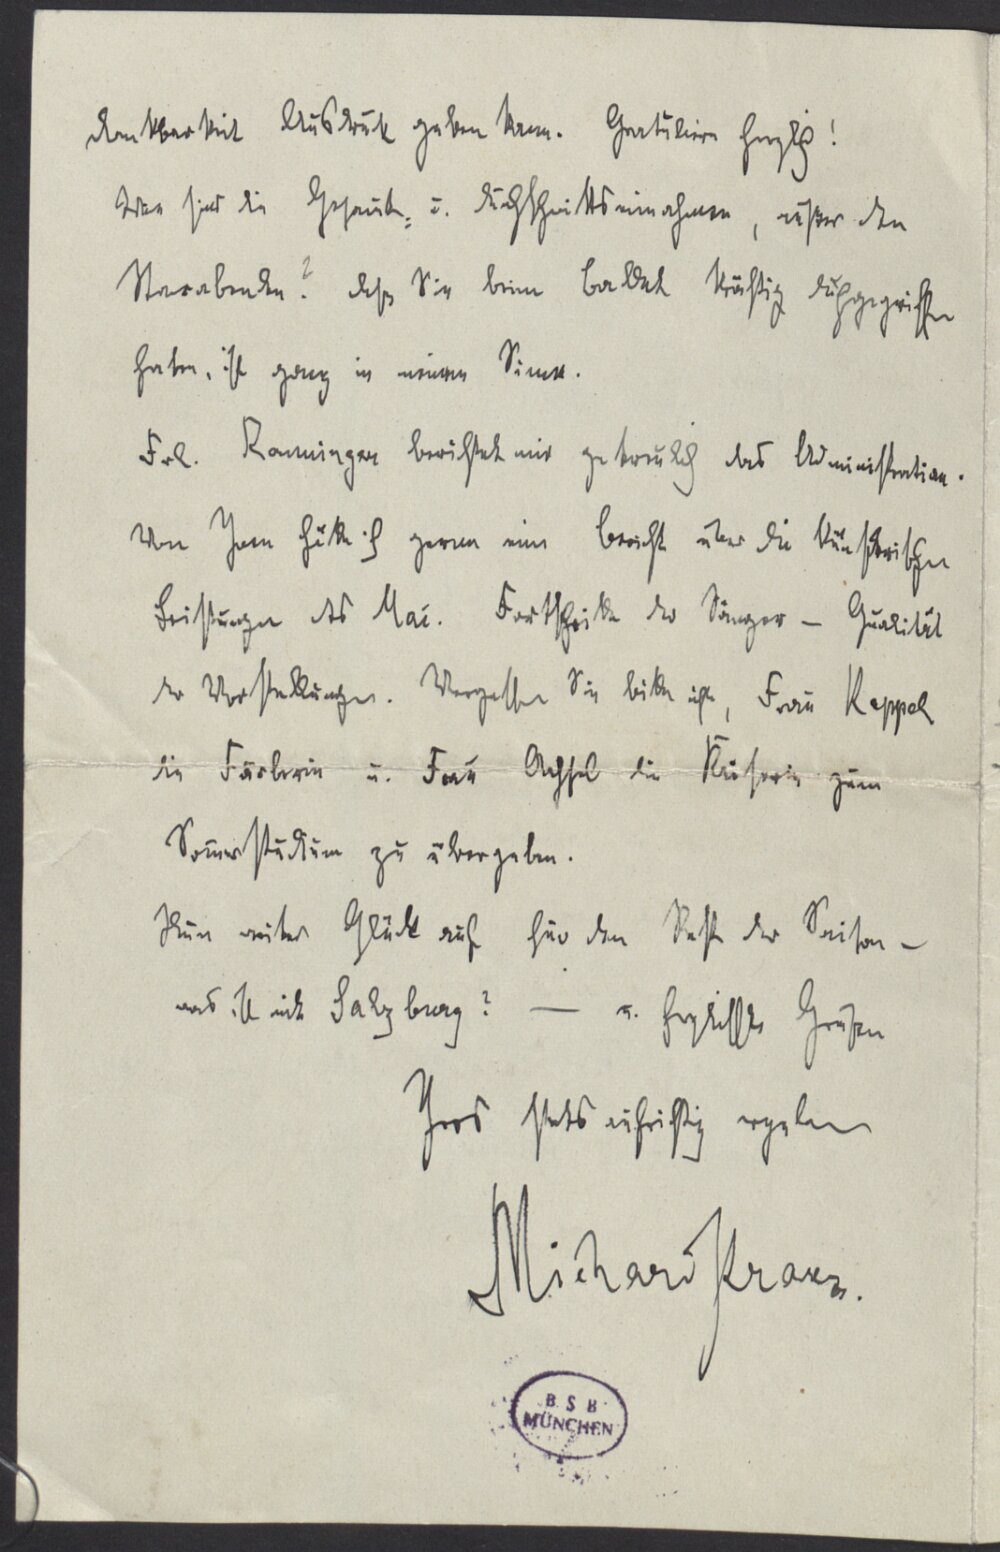 Dankbarkeit Ausdruck geben kann. Gratuliere herzlich!
Wie sind die Gesamt- u. Durchschnittseinnahmen, außer den
Starabenden? Daß Sie beim Ballet kräftig durchgegriffen
haben, ist ganz in meinem Sinne.
Frl. berichtet mir getreulich das Administrative.
Von Ihnen hätte ich gerne einen Bericht über die künstlerischen
Leistungen des Mai. Fortschritte der Sänger – Qualität
der Vorstellungen. Vergessen Sie bitte nicht, Frau Kappel
die Färberin u. Frau Achsel die Kaiserin zum
Sommerstudium zu übergeben.
Nun weiter Glück auf für den Rest der Saison –
was ist mit Salzburg? — u. herzlichste Grüßen
Ihres stets aufrichtig ergebenen
Richard Strauss.
B S B
MÜNCHEN